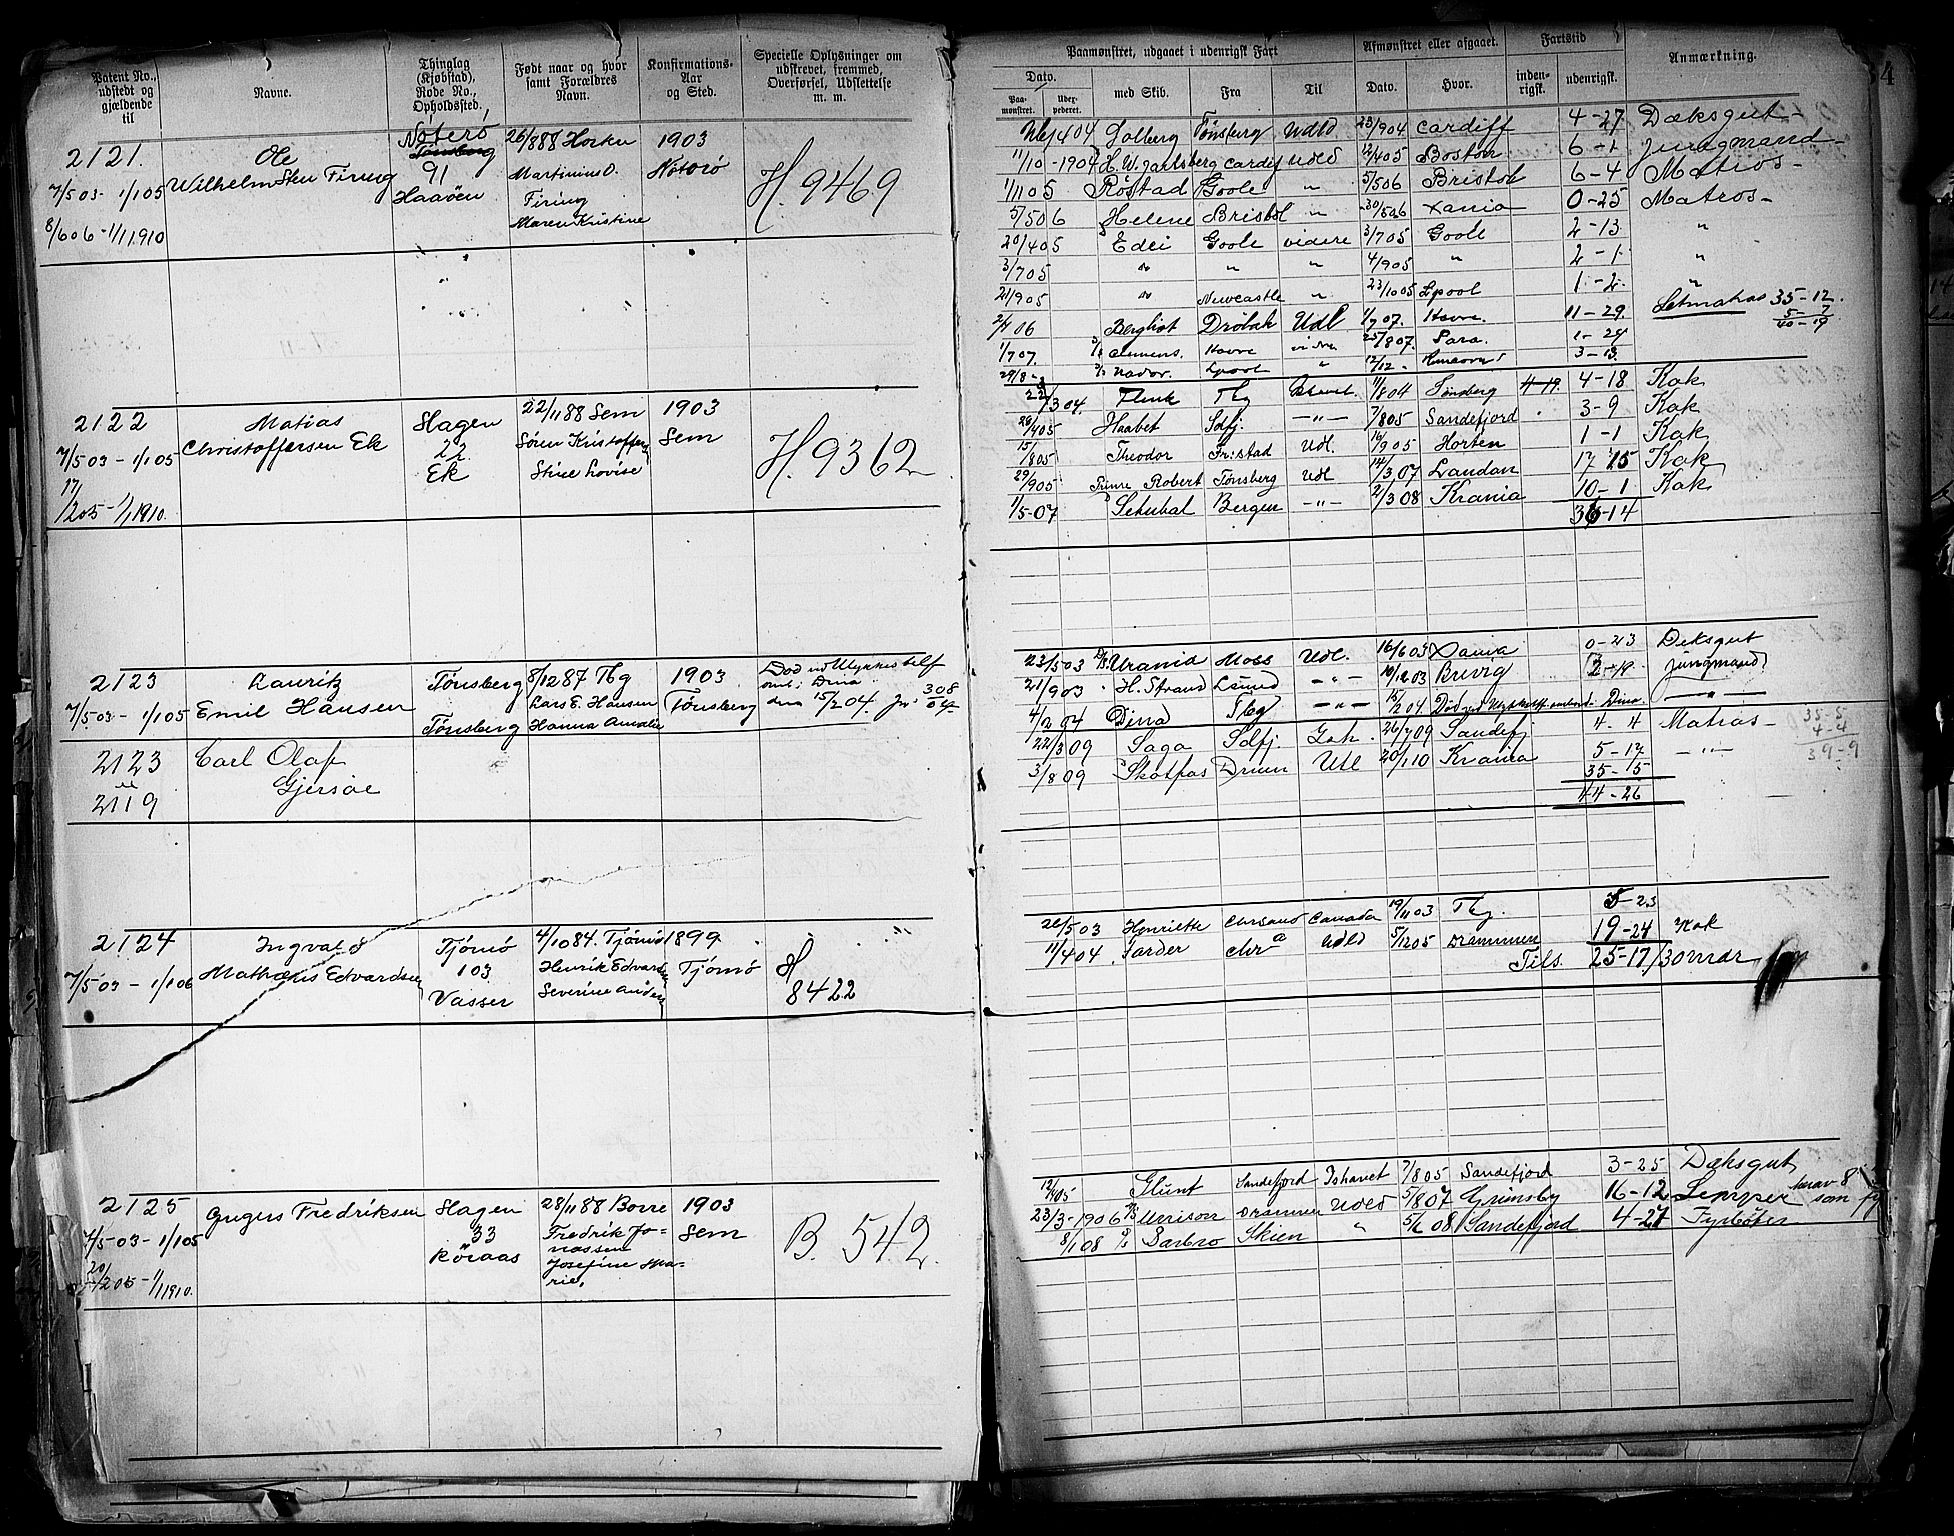 Patent No., udstedt og gjældende til
Navne.
Thinglag (Kjøbstad), Rode No., Opholdssted.
Født naar og hvor samt Forældres Navn.
Konfirmations-Aar og Sted.
Specielle Oplysninger om udskrevet, fremmed, Overførsel, Udslettelse m. m.
2121.
7/5 03 - 1/1 05
8/6 06 - 1/1 1910
Ole
Wilhelm Sten Firing
Nøterø
Tønsberg
91
Haaøen
26/8 88
Martinius O.
Firing
Maren Kristine
1903
Nøterø
H. 9469
2122
7/5 03 - 1/1 05
17/12 05 - 1/1 1910.
Matias
Christoffersen Ek
Slagen
22
Ek
22/11 88 Sem
Søren Kristoffersen
Stine Lovise
1903
Sem
H. 9362
2123
7/5 03 - 1/1 05
Lauritz
Emil Hansen
Tønsberg
Tønsberg
8/12 87 Tbg
Lars E. Hansen
Hanna Amalie
1903
Tønsberg
Død ved Ulykkestilf
omb. i Dina
den 15/2 04. Jn. 308/04
2123
"
2119
Carl Olaf
Gjersøe
2124
7/5 03 - 1/1 06
Ingvald
Mathæus Edvardsen
Tjømø
103
Vasser
4/10 84. Tjømø
Henrik Edvardsen
Severine Andersen
1899
Tjømø
H
8422
2125
7/5 03 - 1/1 05
20/12 05 - 1/1 1910.
Yngvs Fredriksen
Slagen
33
Røraas
28/11 88 Borre
Fredrik Jo-
nassen
Josefine Ma-
rie.
1903
Sem
B. 542.
Paamønstret, udgaaet i udenrigsk Fart
Afmønstret eller afgaaet.
Fartstid
Anmærkning.
4
Dato.
Paamønstret.
med Skib.
Fra
Til
Dato.
Hvor.
indenrigsk.
udenrigsk.
4 04 Solberg Tønsberg Udld 23/9 04 Cardiff 4-27 Dæksgut
11/10 - 1904 H. W. Jarlsberg Cardif Udld 12/4 05 Boston 6-1 Jungmand
1/11 05 Røstad Goole " 5/5 06 Bristol 6-4 Matros
5/5 06 Helene Bristol " 30/5 06 Xania 0-25 Matros
20/4 05 Edei Goole videre 3/7 05 Goole 2-13 "
3/7 05 " " " 4/9 05 " 2-1 "
21/9 05 " Newcastle " 23/10 05 Lpool 1-2 "
2/7 06 Bergliot Drøbak Udl 1/7 07. Havre. 11-29 Letmatros 35-12.
5-7
40-19
1/7 07. Clemens. Havre videre 25/8 07. Para. 1-24
29/8 - Nador. Lpool " 12/12 - 3-13
22/3 04. Flink Tbg Ishavet. 11/8 04 Tønsberg 4-19 4-18 Kok
29/4 05 Haabet Sdfj. -"- 7/8 05 Sandefjord 3-9 Kok
15/8 05 Theodor Fr:stad Udl. 16/9 05 Horten 1-1 Kok
29/9 05 Prince Robert Tønsberg Udl 14/3 07 London 17 15 Kok
1/5 - 07 Setubal Bergen -"- 2/3 08 Krania 10-1 Kok
36-14
23/5 03 Urania Moss Udl. 16/6 03 Xania 0-23 Deksgut
21/9 03 H. Strand Lsund -"- 10/12 03 Brevig 2-19 Jungmand
4/2 04 Dina Tbg -"- 15/2 04 Død ved Ulykkestilf ombord i Dina. -"-
22/3 09 Saga Sdfj. Ish. 26/7 09 Sandefj 4-4 Matros
3/8 09 Skotfos Drmn Udl 20/1 10 Krania 5-17 -"-
35-15
44-26
35-5
4-4
39-9
26/5 03 Henriette Chrsand Canada 19/11 03 Tbg. 5-23
11/4 04 Færder Chr a Udld 5/12 05 Drammen 19-24 Kok
Tils. 25-17/30 mdr
12/4 05 Glunt Sandefjord Ishavet 7/8 05 Sandefjord 3-25 Dæksgut
23/3 - 1906 Unison Drammen Udld 5/8 07 Grimsby 16-12 Lemper krav 8
som fyr
8/1 08 Barbro Skien " 5/6 08 Sandefjord 4-27 Fyrbøter